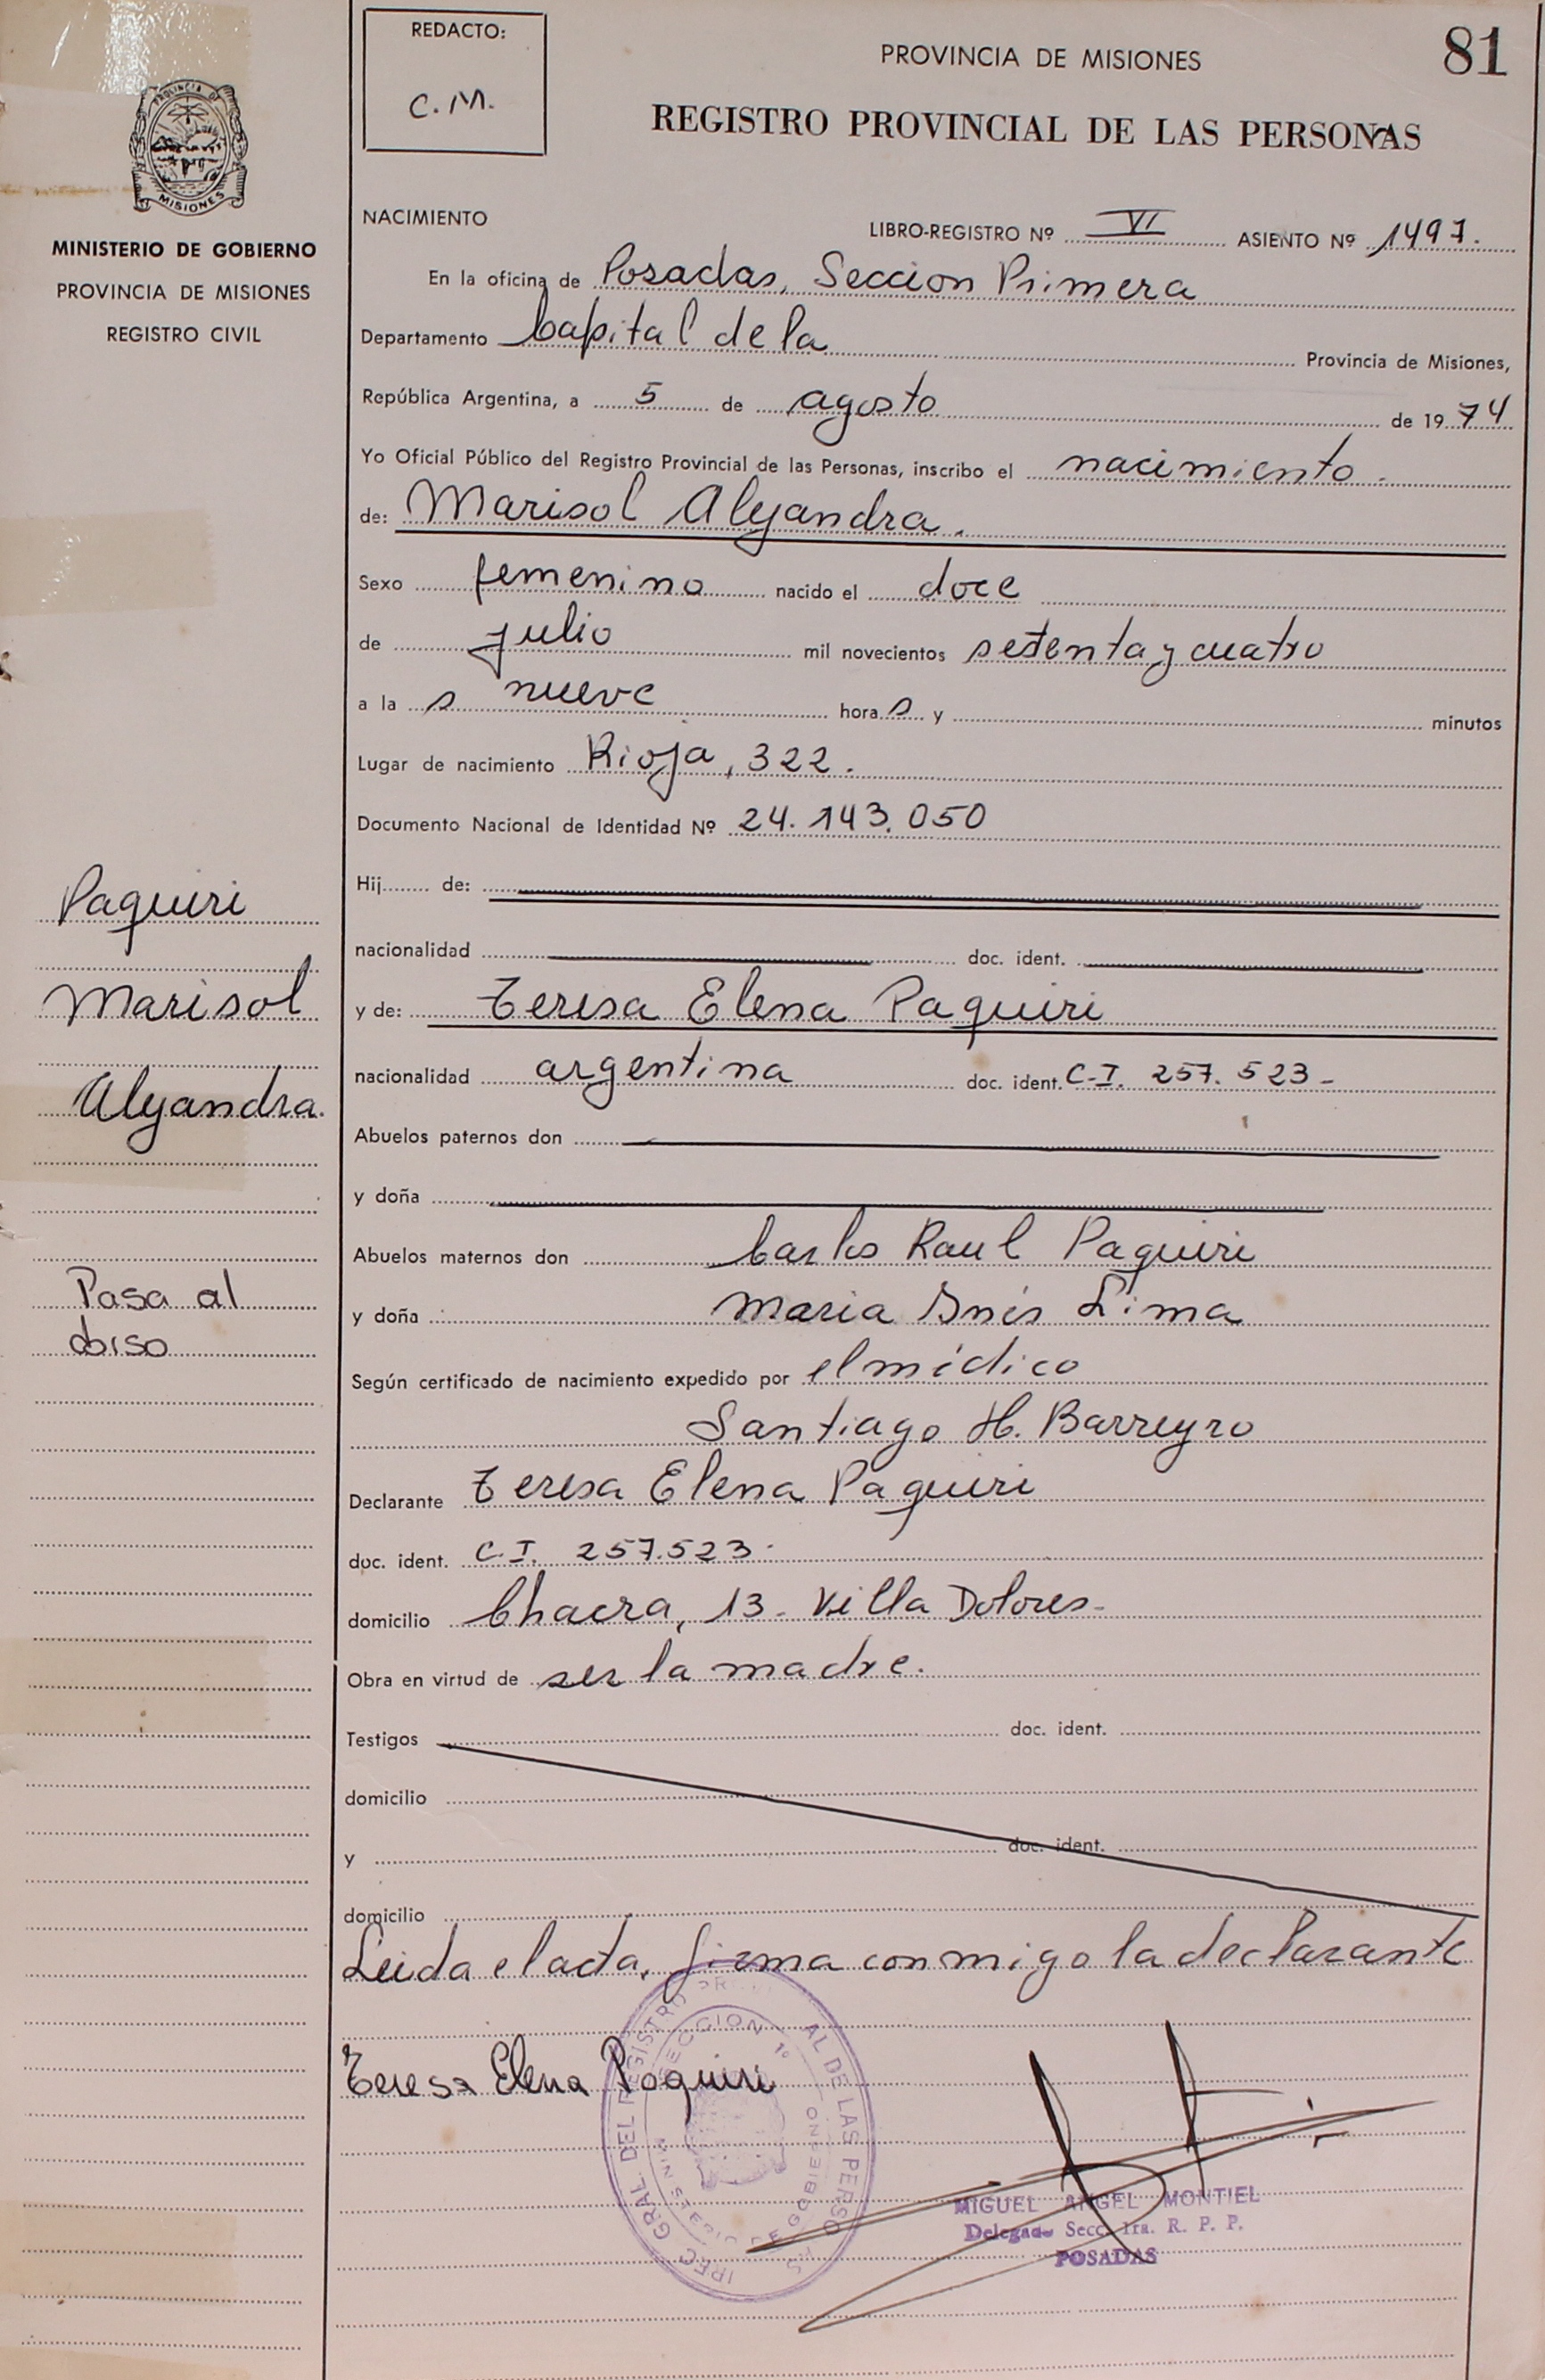 REDACTO:
C.M.
PROVINCIA DE MISIONES
81
REGISTRO PROVINCIAL DE LAS PERSONAS
PROVINCIA DE
MISIONES
MINISTERIO DE GOBIERNO
PROVINCIA DE MISIONES
REGISTRO CIVIL
NACIMIENTO
LIBRO-REGISTRO Nº VI ASIENTO Nº 1497.
En la oficina de Posadas, Seccion Primera
Departamento Capital de la Provincia de Misiones,
República Argentina, a 5 de agosto de 1974
Yo Oficial Público del Registro Provincial de las Personas, inscribo el nacimiento.
de: Marisol Alejandra.
Sexo femenino nacido el doce
de julio mil novecientos setenta y cuatro
a la s nueve hora s y minutos
Lugar de nacimiento Rioja, 322.
Documento Nacional de Identidad Nº 24.143.050
Hij de:
nacionalidad doc. ident.
y de: Teresa Elena Paquiri
nacionalidad argentina doc. ident. C.I. 257.523-
Abuelos paternos don
y doña
Abuelos maternos don Carlos Raul Paquiri
y doña Maria Inés Lima
Según certificado de nacimiento expedido por el médico
Santiago H. Barreyro
Declarante Teresa Elena Paquiri
doc. ident. C.I. 257.523.
domicilio Chacra, 13- Villa Dolores-
Obra en virtud de ser la madre.
Testigos doc. ident.
domicilio
y doc. ident.
domicilio
Leida el acta, firma conmigo la declarante
Teresa Elena Paquiri
Paquiri
Marisol
Alejandra.
Pasa al
MIGUEL ANGEL MONTIEL
Delegado Secc. 1ra. R. P. P.
POSADAS
GRAL. DEL REGISTRO AL DE LAS PERSO
SECCION 1º
DE GOBIERNO